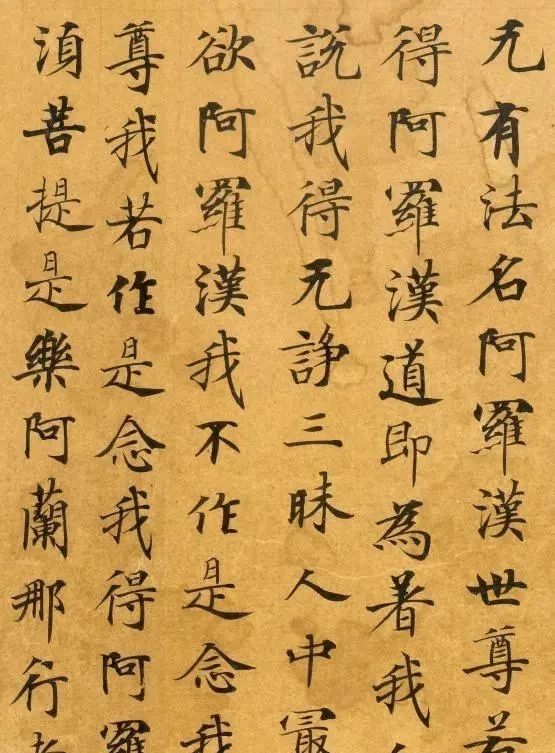 无有法名阿羅漢世尊若
得阿羅漢道即為著我
説我得无諍三昧人中冣
欲阿羅漢我不作是念我
尊我若作是念我得阿羅
湏菩提是樂阿蘭那行